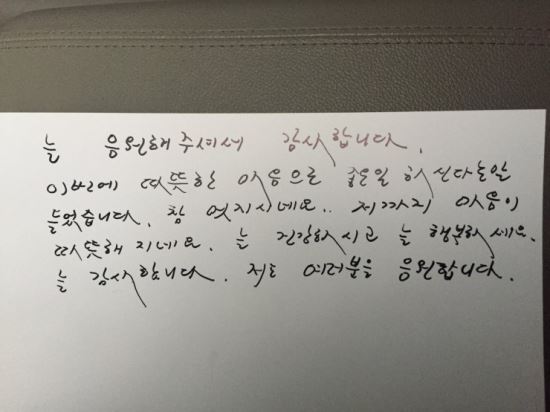 늘 응원해주셔서 감사합니다.
이번에 따뜻한 마음으로 좋은일 하신다는말
들었습니다. 참 멋지시네요.. 저까지 마음이
따뜻해 지네요. 늘 건강하시고 늘 행복하세요.
늘 감사합니다. 저도 여러분을 응원합니다.